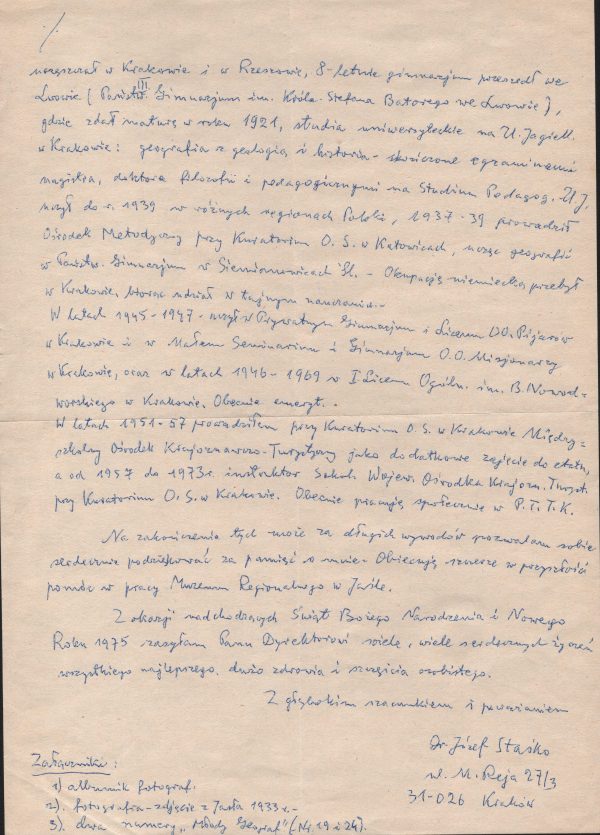 uczęszczał w Krakowie i w Rzeszowie, 8-letnie gimnazjum przeszedł we
Lwowie (Państw. III. Gimnazjum im. Króla Stefana Batorego we Lwowie),
gdzie zdał maturę w roku 1921, studia uniwersyteckie na U. Jagiell.
w Krakowie: geografia z geologią i historia - skończone egzaminami
magistra, doktora filozofii i pedagogicznymi na Studium Pedagog. U.J.
uczył do r. 1939 w różnych regionach Polski, 1937-39 prowadził
Ośrodek Metodyczny przy Kuratorium O.S. w Katowicach, ucząc geografii
w Państw. Gimnazjum w Siemianowicach Śl. - Okupację niemiecką przebył
w Krakowie, biorąc udział w tajnym nauczaniu.-
W latach 1945-1947 - uczył w Prywatnym Gimnazjum i Liceum OO. Pijarów
w Krakowie i w Małem Seminarium i Gimnazjum O.O. Misjonarzy
w Krakowie, oraz w latach 1946-1969 w I Liceum Ogóln. im. B. Nowod-
worskiego w Krakowie. Obecnie emeryt. -
W latach 1951-57 prowadziłem przy Kuratorium O.S. w Krakowie Między-
szkolny Ośrodek Krajoznawczo-Turystyczny jako dodatkowe zajęcie do etatu,
a od 1957 do 1973 r. instruktor Szkoln. Wojew. Ośrodka Krajozn.-Turyst.
przy Kuratorium O.S. w Krakowie. Obecnie pracuję społecznie w P.T.T.K.
Na zakończenie tych może za długich wywodów pozwalam sobie
serdecznie podziękować za pamięć o mnie. Obiecuję szczerze w przyszłości
pomóc w pracy Muzeum Regionalnego w Jaśle.
Z okazji nadchodzących Świąt Bożego Narodzenia i Nowego
Roku 1975 zasyłam Panu Dyrektorowi wiele, wiele serdecznych życzeń
wszystkiego najlepszego, dużo zdrowia i szczęścia osobistego.
Z głębokim szacunkiem i poważaniem
Dr. Józef Staśko
ul. M. Reja 27/3
31-026 Kraków
Załączniki:
1) albumik fotograf.
2). fotografia-zdjęcie z Jasła 1933 r.-
3). dwa numery „Młody Geograf" (Nr. 19 i 24).